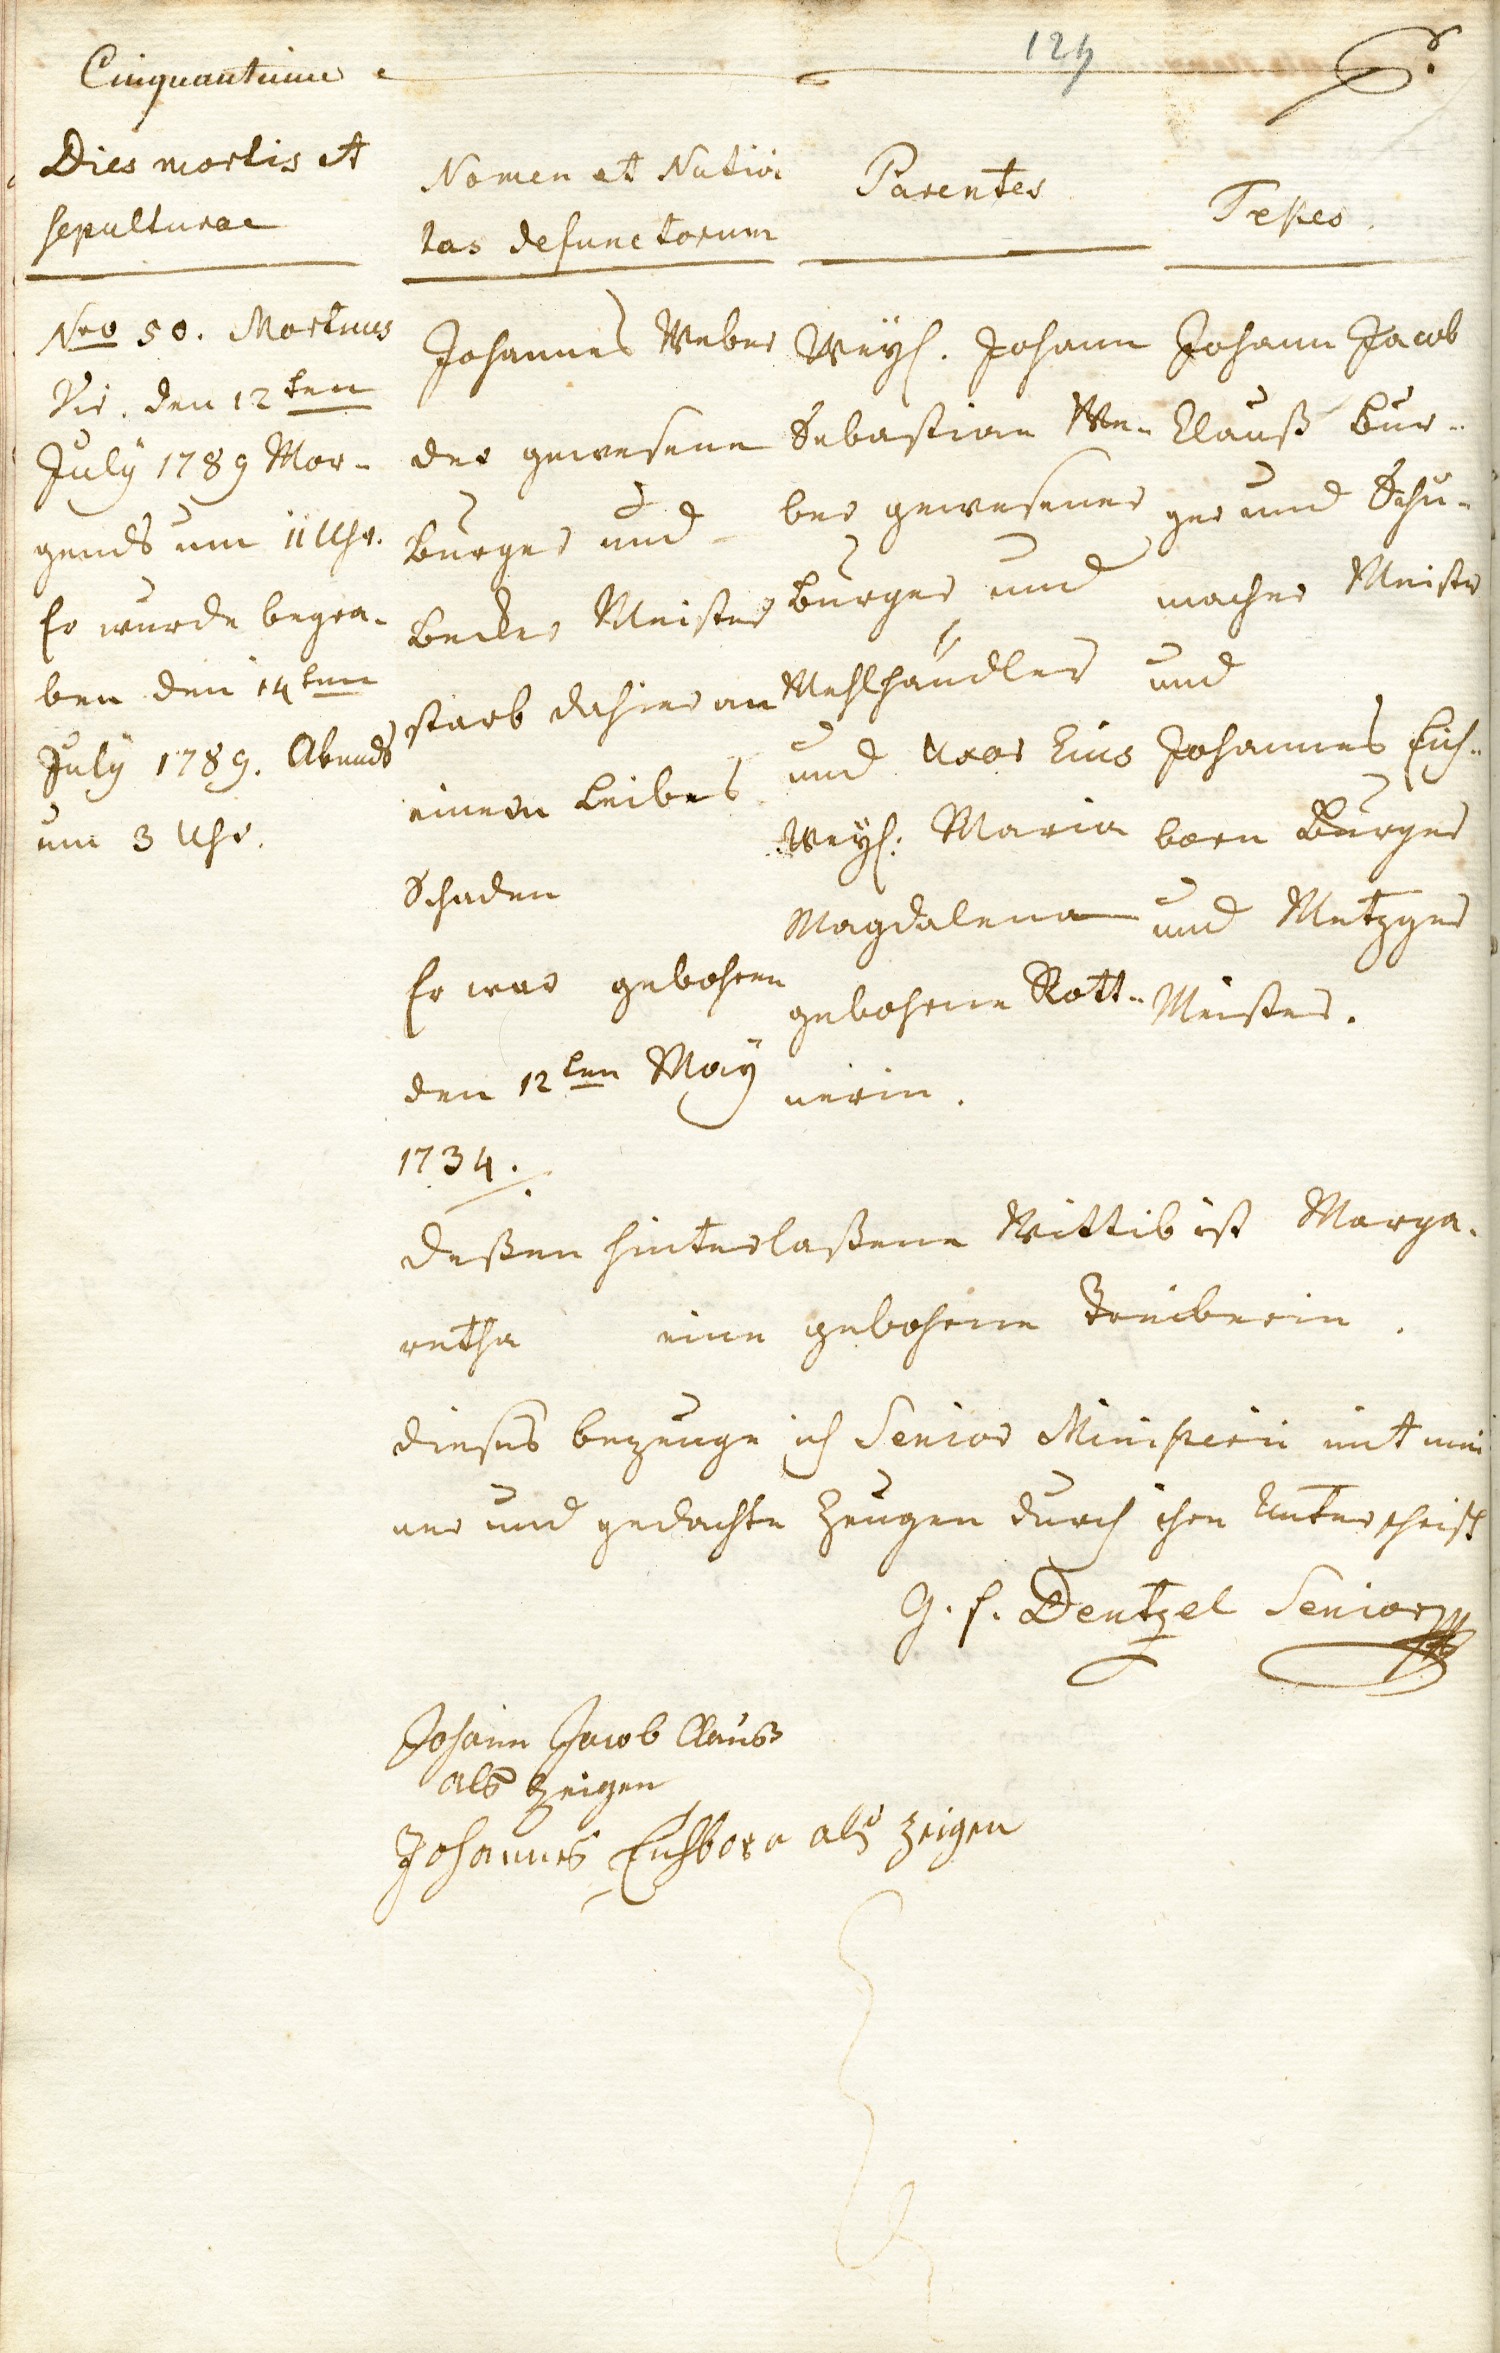 124
Cinquantieme
Dies mortis et
sepulturae
Nro 50. Mortuus
Vir. den 12ten
July 1789 Mor-
gends um 11 Uhr.
Er wurde begra-
ben den 14ten
July 1789. Abends
um 3 Uhr.
Nomen et Nativi
tas defunctorum
Johannes Weber
der gewesene
Burger und
Becker Meister
starb dahier an
einem Leibes
Schaden
Er war gebohren
den 12ten May
1734.
Parentes
Weyl. Johann
Sebastian We-
ber gewesener
Burger und
Mehlhändler
und Uxor Eius
Weyl: Maria
Magdalena
gebohrne Rott-
nerin.
Testes.
Johann Jacob
Clauß Bur-
ger und Schu-
macher Meister
und
Johannes Eich-
born Burger
und Metzger
Meister.
deßen hinterlaßene Wittib ist Marga-
retha eine gebohrne Treiberin.
dieses bezeuge ich Senior Ministerii mit mei
ner und gedachte Zeugen durch ihre Unterschrift
G. f. Dentzel Senior
Johann Jacob Clauß
als Zeigen
Johannes Eichborn als Zeigen